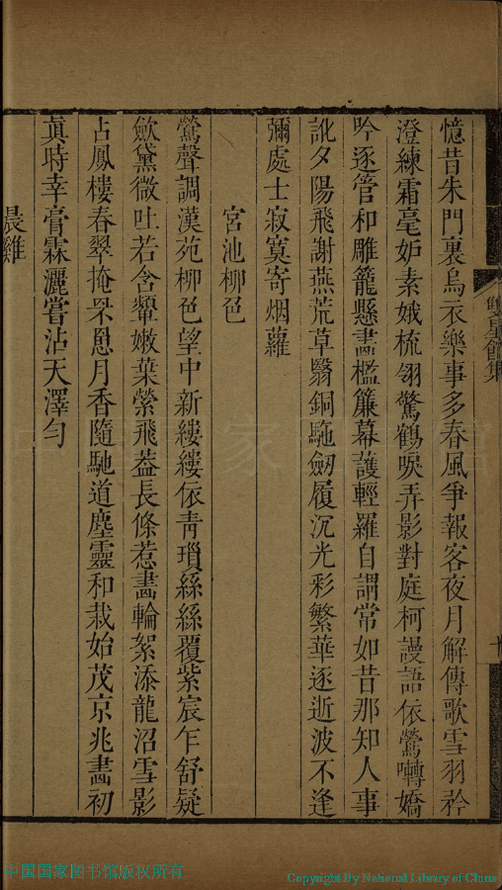 憶昔朱門裏烏衣樂事多春風爭報客夜月解傳歌雪羽矜
澄練霜毫妒素娥梳翎驚鶴唳弄影對庭柯謾語依鶯囀嬌
吟逐管和雕籠懸畵檻簾幕護輕羅自謂常如昔那知人事
訛夕陽飛謝燕荒草翳銅駞劒履沉光彩繁華逐逝波不逢
彌處士寂寞寄烟蘿
宮池柳色
鶯聲調漢苑柳色望中新縷縷依青瑣絲絲覆紫宸乍舒疑
歛黛微吐若含顰嫩葉縈飛葢長條惹畵輪絮添龍沼雪影
占鳳樓春翠掩罘罳月香隨馳道塵靈和栽始茂京兆畵初
真時幸膏霖灑嘗沾天澤勻
晨雞
中国国家图书馆版权所有
Copyright By National Library of China